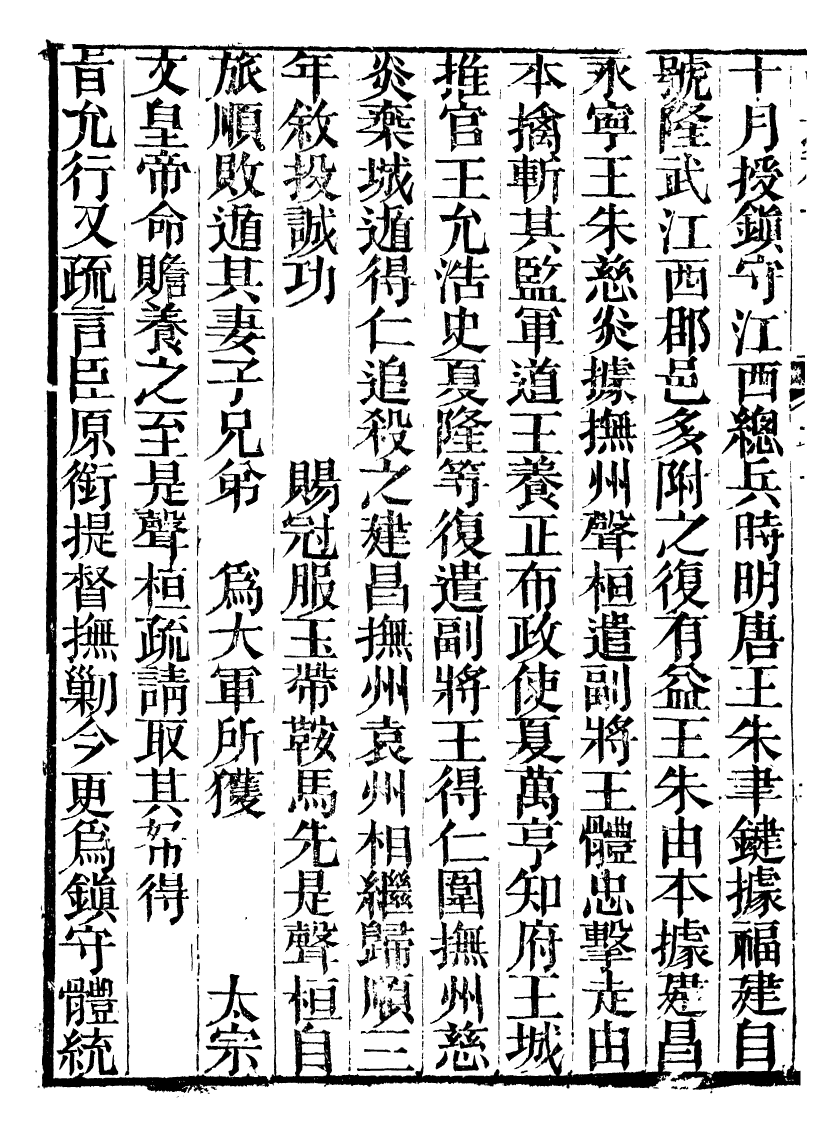 十月授鎮守江西總兵時明唐王朱聿鍵據福建自
號隆武江西郡邑多附之復有益王朱由本據建昌
永寧王朱慈炎據撫州聲桓遣副將王體忠擊走由
本擒斬其監軍道王養正布政使夏萬亨知府王域
推官王允浩史夏隆等復遣副將王得仁圍撫州慈
炎棄城遁得仁追殺之建昌撫州袁州相繼歸順三
年敘投誠功　　　賜冠服玉帶鞍馬先是聲桓自
旅順敗遁其妻子兄弟　爲大軍所獲　　　太宗
文皇帝命贍養之至是聲桓疏請取其帑得
旨允行又疏言臣原銜提督撫剿今更爲鎮守體統